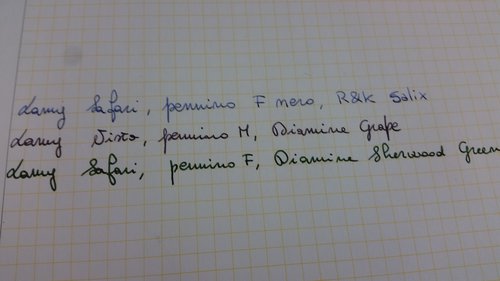 Lamy Safari, pennino F nero, R&K Salix
Lamy Vista, pennino M, Diamine Grape
Lamy Safari, pennino F, Diamine Sherwood Green